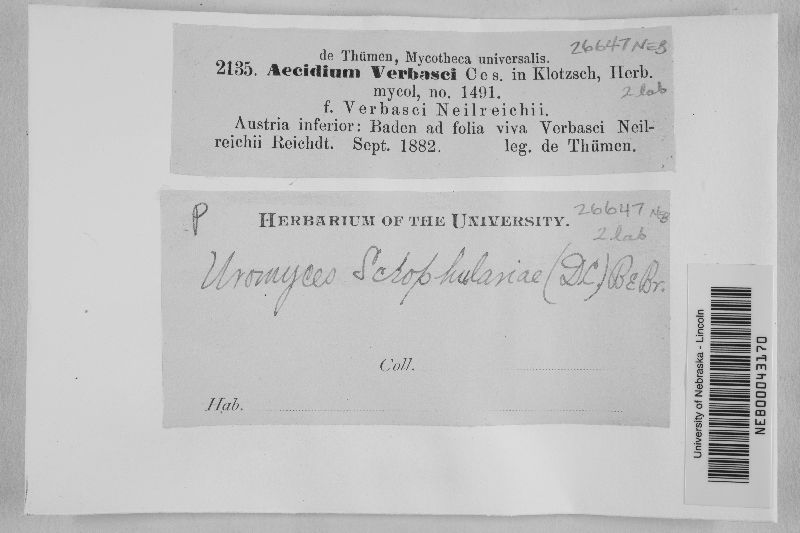 de Thümen, Mycotheca universalis.
26647 NEB
2135. Aecidium Verbasci Ces. in Klotzsch, Herb.
mycol, no. 1491.
2 lab
f. Verbasci Neilreichii.
Austria inferior: Baden ad folia viva Verbasci Neil-
reichii Reichdt. Sept. 1882. leg. de Thümen.
P
HERBARIUM OF THE UNIVERSITY.
26647 NEB
2 lab
Uromyces Scrophulariae (DC.) B & Br.
Coll.
Hab.
University of Nebraska - Lincoln
NEB00043170